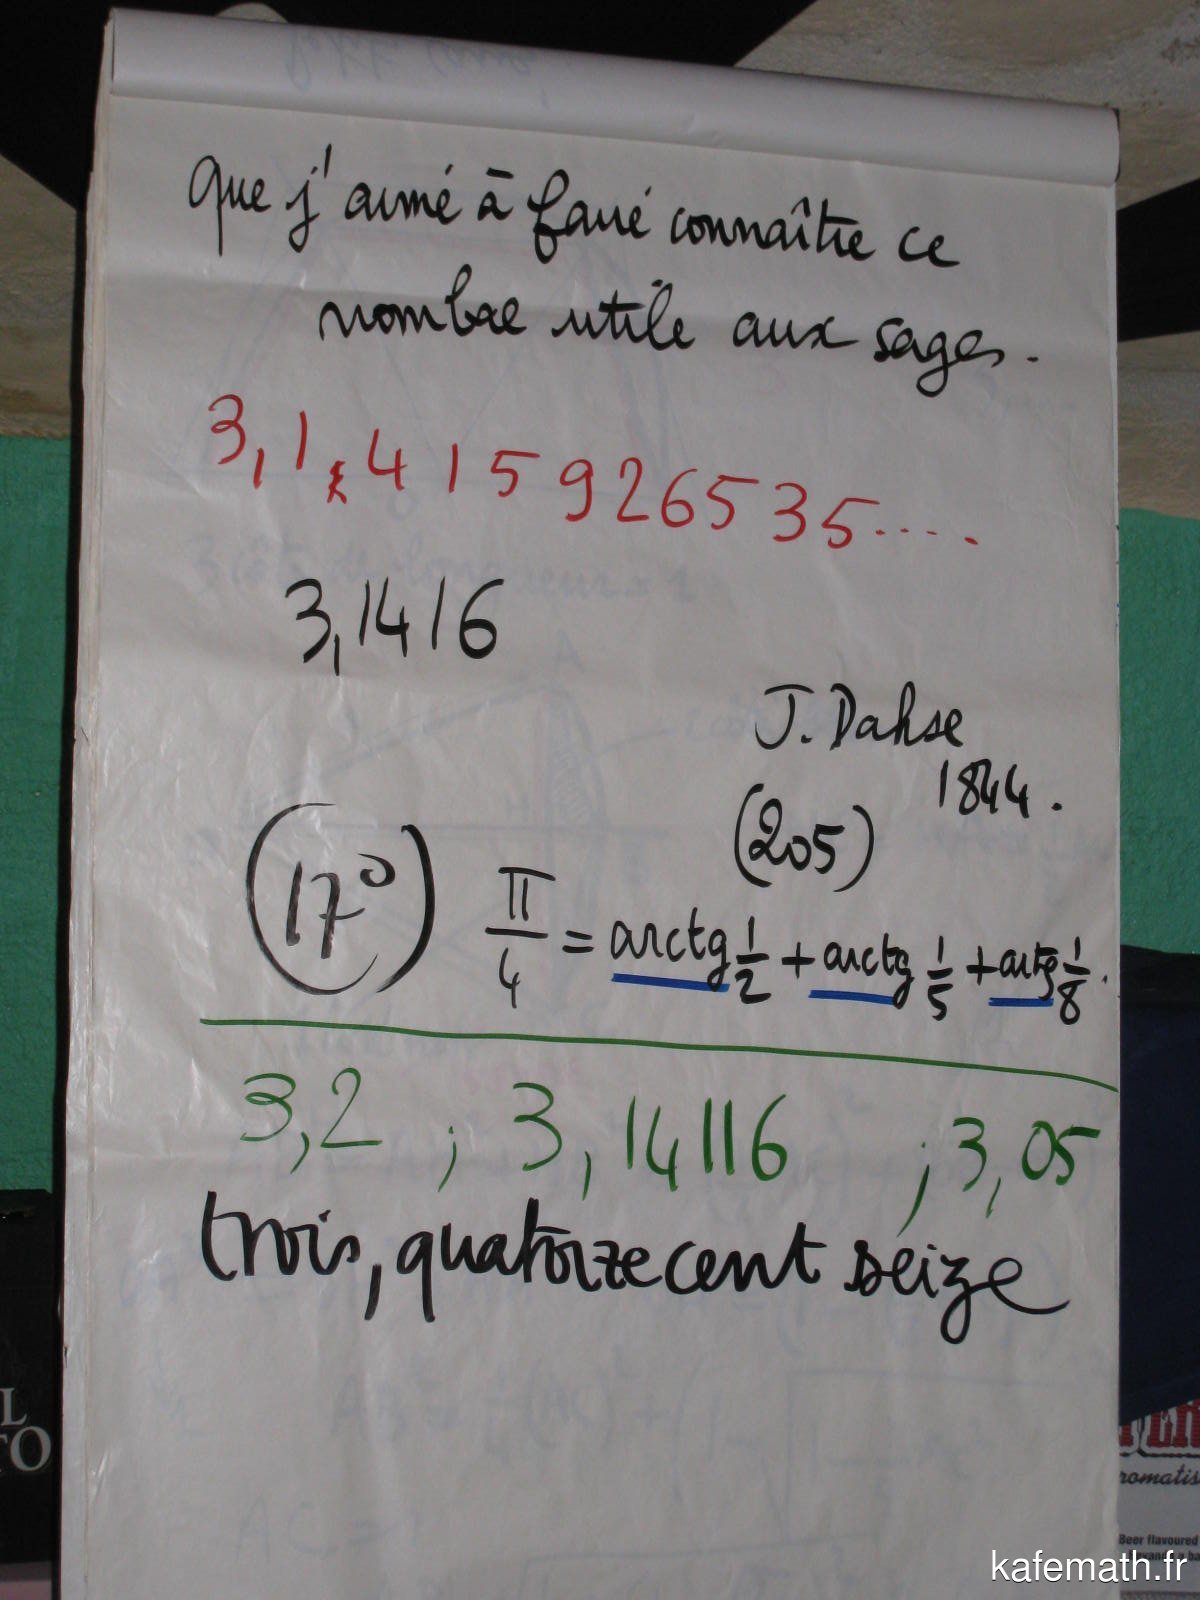 Que j'aime à faire connaître ce
nombre utile aux sages.
3,1 4 1 5 9 2 6 5 3 5....
3,1416
J. Dahse
1844.
(205)
(17°) π/4 = arctg 1/2 + arctg 1/5 + arctg 1/8.
3,2 ; 3,14116 ; 3,05
trois, quatorze cent seize
L
TO
romatis
Beer flavoured
kafemath.fr